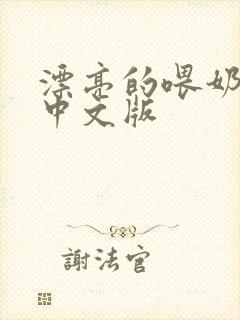 漂亮的喂奶
中文版
謝法官